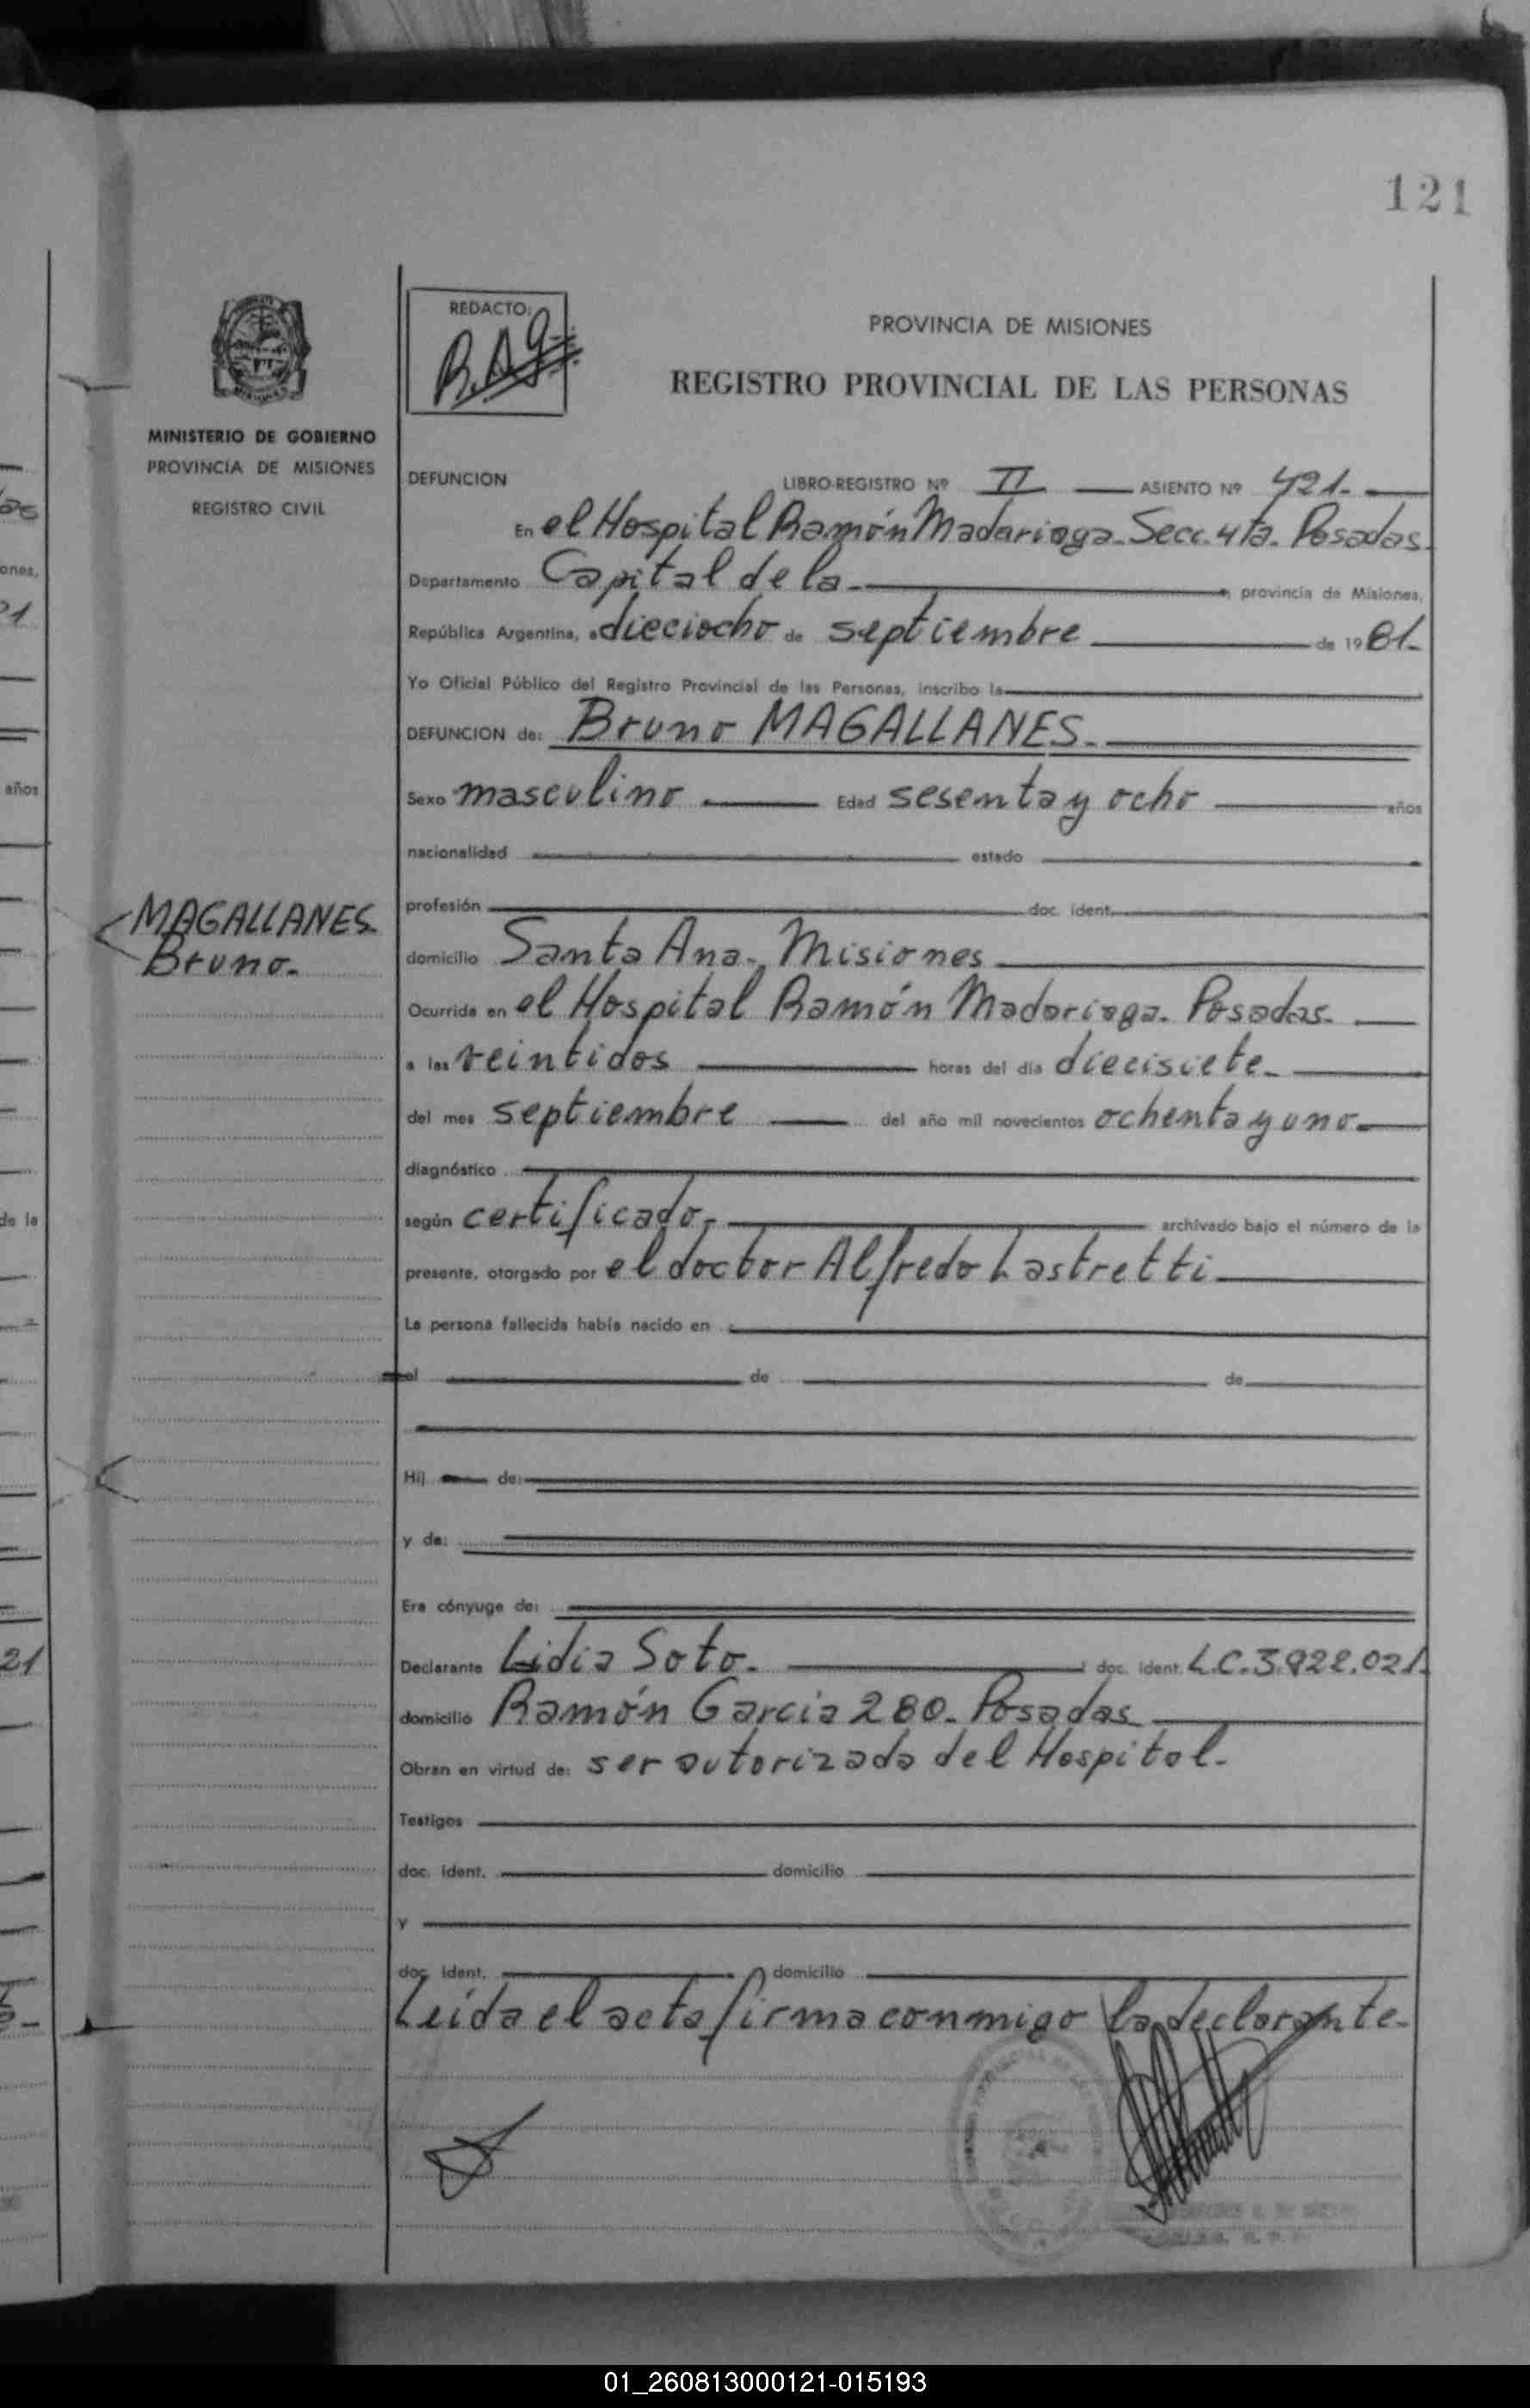 121
REDACTO:
PROVINCIA DE MISIONES
REGISTRO PROVINCIAL DE LAS PERSONAS
MINISTERIO DE GOBIERNO
PROVINCIA DE MISIONES
REGISTRO CIVIL
DEFUNCION LIBRO-REGISTRO Nº II ASIENTO Nº 421.-
En el Hospital Ramón Madariaga-Secc. 4ta. Posadas
Departamento Capital de la provincia de Misiones,
República Argentina, a dieciocho de septiembre de 1981.-
Yo Oficial Público del Registro Provincial de las Personas, inscribo la
DEFUNCION de: Bruno MAGALLANES.-
Sexo masculino Edad sesenta y ocho años
nacionalidad estado
profesión doc. ident.
MAGALLANES
Bruno.-
domicilio Santa Ana-Misiones
Ocurrida en el Hospital Ramón Madariaga-Posadas-
a las veintidos horas del día diecisiete-
del mes septiembre del año mil novecientos ochenta y uno-
diagnóstico
según certificado,- archivado bajo el número de la
presente, otorgado por el doctor Alfredo Lastretti-
La persona fallecida había nacido en
el de de
Hij de:
y de:
Era cónyuge de:
Declarante Lidia Soto.- doc. ident. L.C. 3.922.021.
domicilio Ramón Garcia 280-Posadas
Obran en virtud de: ser autorizada del Hospital-
Testigos
doc. ident. domicilio
y
doc. ident. domicilio
Leida el acta firma conmigo la declarante-
años
de la
21
01_260813000121-015193